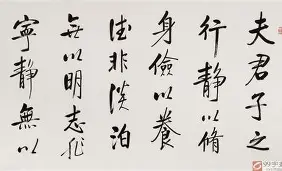 夫君子之
行静以脩
身儉以養
德非淡泊
無以明志非
寧静無以